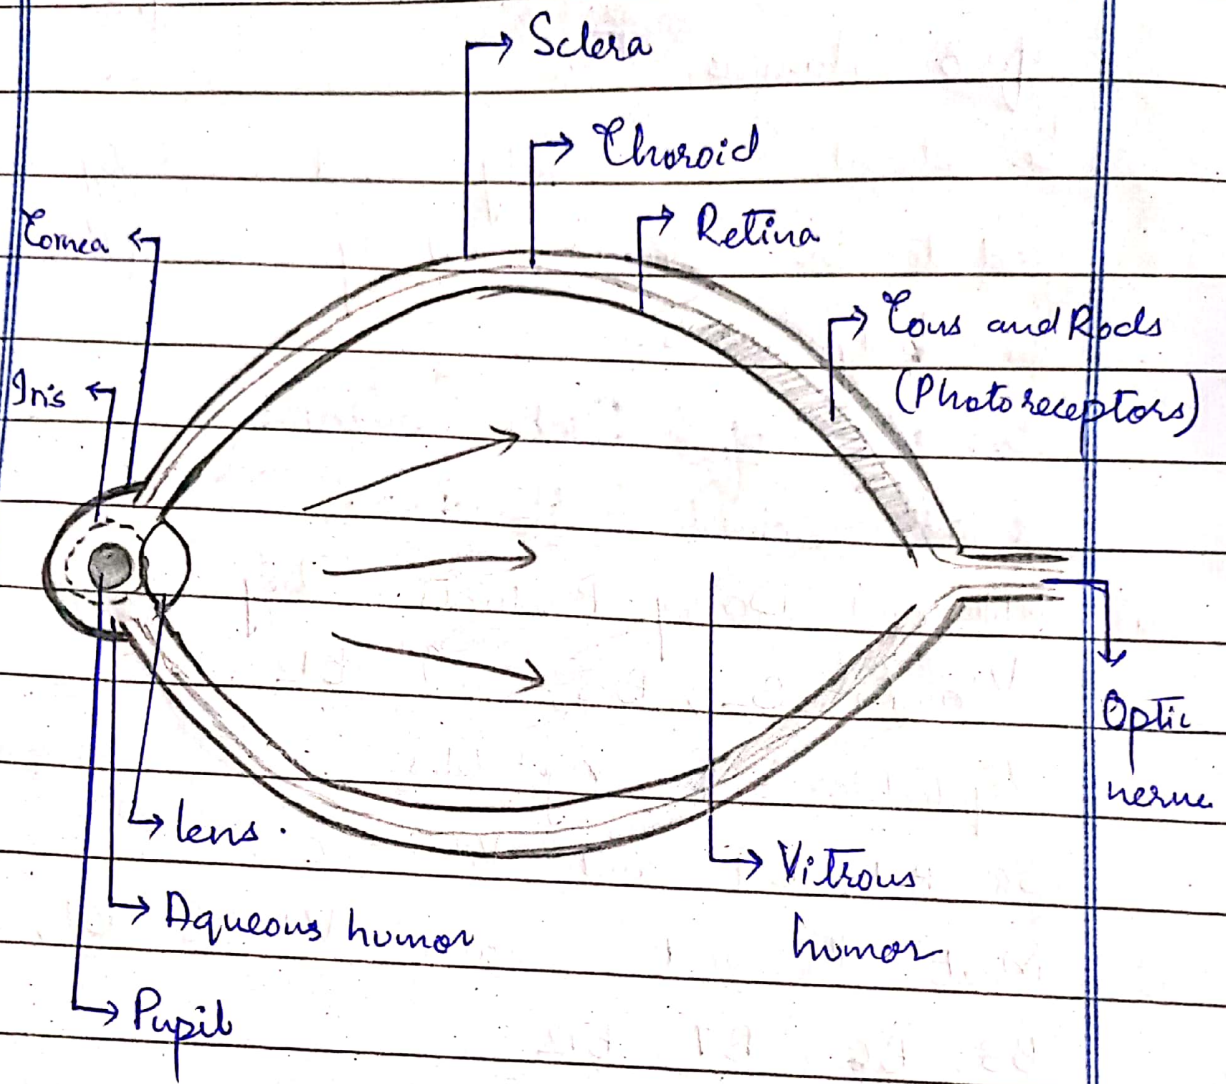 Sclera
Choroid
Retina
Cornea
Cons and Rods
(Photoreceptors)
Iris
Optic
nerve
lens.
Vitrous
humor
Aqueous humor
Pupil